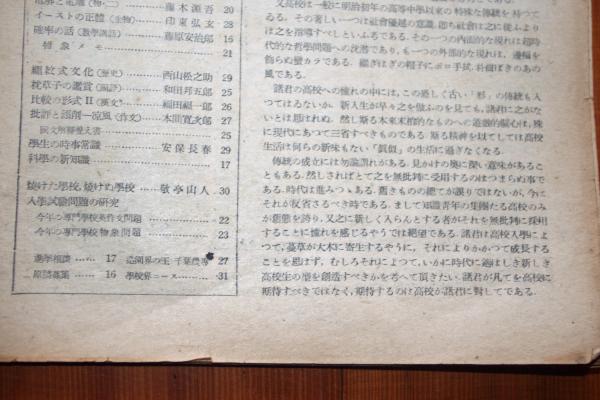 藤本源吾 20
イーストの正體(生物) 印東弘玄 28
確率の話(數學講話) 藤原安治郎 16
物象メモ 21
繩紋式文化(歷史) 西山松之助 29
枕草子の鑑賞(國語) 和田邦五郎 25
比較の形式Ⅱ(漢文) 福田福一郎 26
批評と添削―凉風(作文) 木間寬次郎
國文解釋覺え書 25
學生の時事常識 安保長春 29
科學の新知識 17
燒けた學校、燒けぬ學校 敬亭山人 30
入學試驗問題の硏究
今年の專門學校英作文問題 22
今年の專門學校物象問題 23
進學相談 17
造園界の王 千葉農專 27
原語募集 16
學校界ニュース 31
又高校は一般に明治初年の高等中學以來の特殊な傳統を持つて
ゐる。その著しい一つは社會優越の意識、卽ち社會は之に從ふより
は之を指導すべしといふよである。その一つの內面的な現れは超時
代的な哲學問題への沈潛であり、も一つの外部的な現れは、邊幅を
飾らぬ蠻カラである。繼ぎはぎの帽子にボロ手拭、朴齒ばきのあの
風である。
諸君の高校への憧れの中には、この惡しく古い「形」の傳統も入
つてはゐないか。新入生が早々之を倣ふのを見ても、諸君に之がな
いとは思はれぬ。然し斯る本來末梢的なものへの追隨的關心は、殊
に現代にあつて三省すべきものである。斯る精神を以てしては高校
生活は何らの新味もない「眞似」の生活に過ぎなくなる。
傳統の成立には勿論謂れがある。見かけの奧に深い意味があるこ
ともある。然しさればとて之を無批判に受用するのはつまらぬ事で
ある。時代は進みつゝある。舊きものの總てが誤りではないが、今は
それが反省さるべき時である。まして知識靑年の集團たる高校のみ
が舊態を誇り、又之に新しく入らんとする者がそれを無批判に採用
することに憧れを感じるやうでは絕望である。諸君は高校入學によ
つて、蔓草が大木に寄生するやうに、それによりかかつて成長する
ことを思はず、むしろそれによつて、いかに時代に適はしき新しき
高校生の型を創造すべきかを考へて頂きたい。諸君が凡てを高校に
期待すべきではなく、期待するのは高校が諸君に對してである。